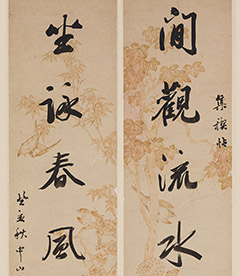 集禊帖
間觀流水
坐詠春風
癸亥秋中山